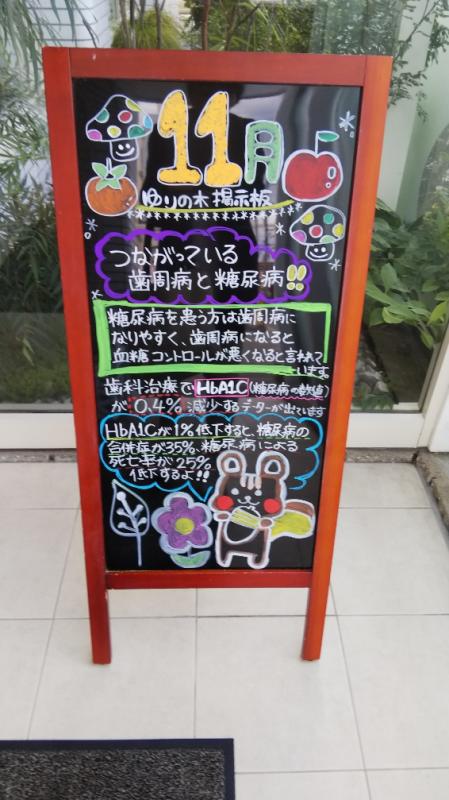 11月
ゆりの木 掲示板
つながっている
歯周病と糖尿病!!
糖尿病を患う方は歯周病に
なりやすく、歯周病になると
血糖コントロールが悪くなると言われて
います。
歯科治療でHbA1C(糖尿病の数値)
が0.4%減少するデーターが出ています
HbA1Cが1%低下すると、糖尿病の
合併症が35%、糖尿病による
死亡率が25%
低下するよ!!